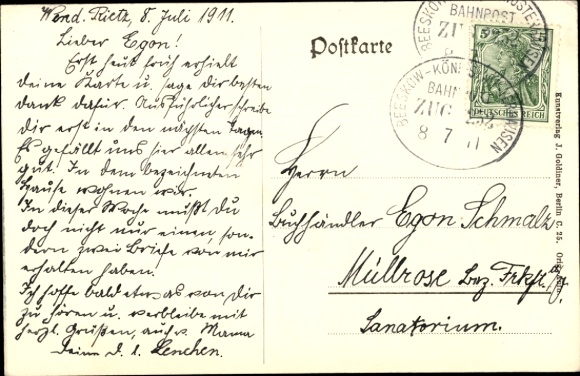 Wend. Rietz, 8. Juli 1911.
Lieber Egon!
Erst heut früh erhielt
deine Karte u. sage dir besten
dank dafür. Ausführlicher schreibe
dir erst in den nächsten Tagen.
Es gefällt uns hier allen sehr
gut. In dem bezeichneten
Hause wohnen wir.
In dieser Woche mußt Du
doch nicht nur einen, son-
dern zwei Briefe von mir
erhalten haben.
Ich hoffe bald etwas von Dir
zu hören u. verbleibe mit
herzl. Grüßen, auch v. Mama
Deine d. l. Lenchen.
Postkarte
BEESKOW-KÖNIGS WUSTERHAUSEN
BAHNPOST
ZUG
5 5
DEUTSCHES REICH
BEESKOW-KÖNIGS WUSTERHAUSEN
BAHNPOST
ZUG
8 7 11
Herrn
Buchhändler Egon Schmalz
Müllrose Bez. Frkft. a/O.
Sanatorium.
Kunstverlag J. Goldiner, Berlin C. 25.